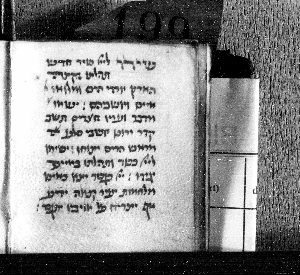 199
שירו ליי שיר חדש
תהלתו מקצה
הארץ יורדי הים ומלואו
איים ויושביהם : ישאו
מדבר ועריו חצרים תשב
קדר ירונו יושבי סלע
מראש הרים יצוחו : ישימו
ליי כבוד ותהלתו באיים
יגידו : יי כגבור יצא כאיש
מלחמות יעיר קנאה יריע
אף יצריח על אויביו יתגבר :